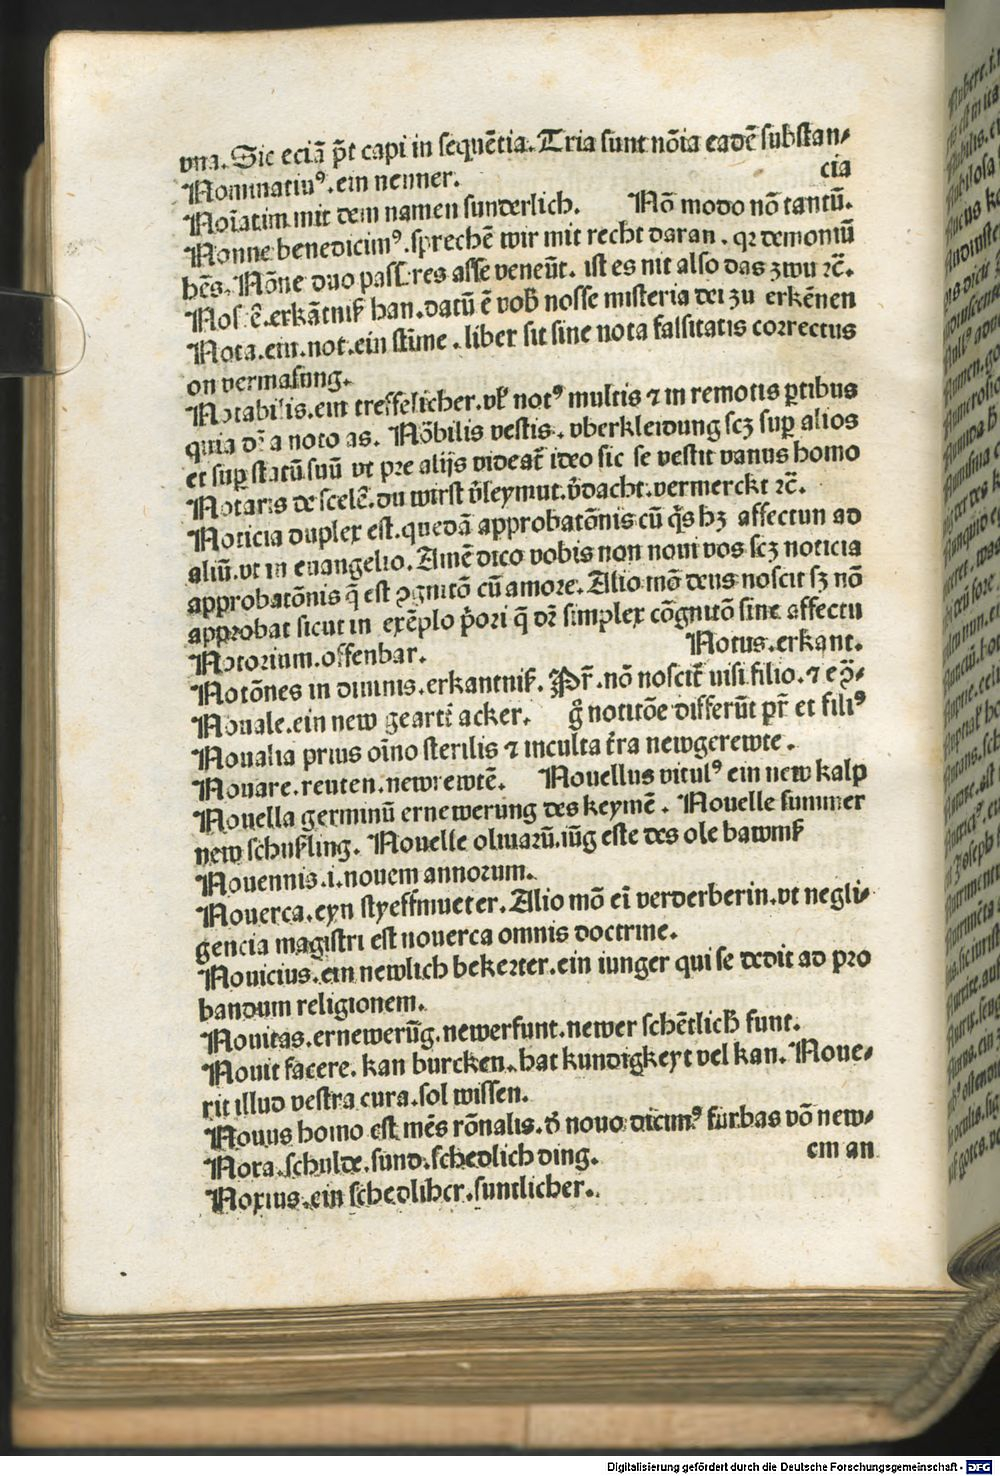 vna. Sic eciā p̄t capi in sequētia. Tria sunt nōia eadē substan⸗
Nominatiuꝰ. ein nenner. cia
Noīatim mit dem namen sunderlich. Nō modo nō tantū.
Nonne benedicimꝰ. sprechē wir mit recht daran. qꝛ demoniū
hēs. Nōne duo passeres asse veneūt. ist es nit also das zwu ꝛc̄.
Nosse. erkātniß han. datū ē vobꝭ nosse misteria dei zu erkēnen
Nota. ein. not. ein stim̄e. liber sit sine nota falsitatis correctus
on vermasung.
Notabilis. ein treffelicher. vel notꝰ multis ⁊ in remotis ꝑtibus
quia dꝛ̄ a noto as. Nōbilis vestis. vberkleidung scꝫ suꝑ alios
et suꝑ statū suū vt pre alijs videat̄ ideo sic se vestit vanus homo
Notaris de scelē. du wirst v̄leymut. v̄dacht. vermerckt ꝛc̄.
Noticia duplex est. quedā approbatōnis cū q̄s hꝫ affectun ad
aliū. vt in euangelio. Amē dico vobis non noui vos scꝫ noticia
approbatōnis q̄ est ꝯgnitō cū amore. Alio mō deus noscit sꝫ nō
approbat sicut in exēplo p̄ori q̄ dꝛ̄ simplex cōgnitō sine affectu
Notorium. offenbar. Notus. erkant.
Notōnes in diuinis. erkantniß. Pr̄. nō noscit̄ nisi filio. ⁊ eꝯ̄⸗
Nouale. ein new geartꝭ acker. g̊ notitōe differūt pr̄ et filiꝰ
Noualia prius oīno sterilis ⁊ inculta t̄ra newgerewte.
Nouare. reuten. newrewtē. Nouellus vitulꝰ ein new kalp
Nouella germinū ernewerung des keymē. Nouelle summer
new schußling. Nouelle oliuarū. iūg este des ole bawmß
Nouennis. i. nouem annorum.
Nouerca. eyn styeffmueter. Alio mō eī verderberin. vt negli⸗
gencia magistri est nouerca omnis doctrine.
Nouicius. ein newlich bekerter. ein iunger qui se dedit ad pro
bandum religionem.
Nouitas. ernewerūg. newerfunt. newer schētlichꝭ funt.
Nouit facere. kan burcken. hat kundigkeyt vel kan. Noue⸗
rit illud vestra cura. sol wissen.
Nouus homo est mēs rōnalis. d̄ nouo dicimꝰ fürbas vō new⸗
Noxa. schulde. sund. schedlich ding. em an
Noxius. ein schedliher. suntlicher.
Digitalisierung gefördert durch die Deutsche Forschungsgemeinschaft - DFG